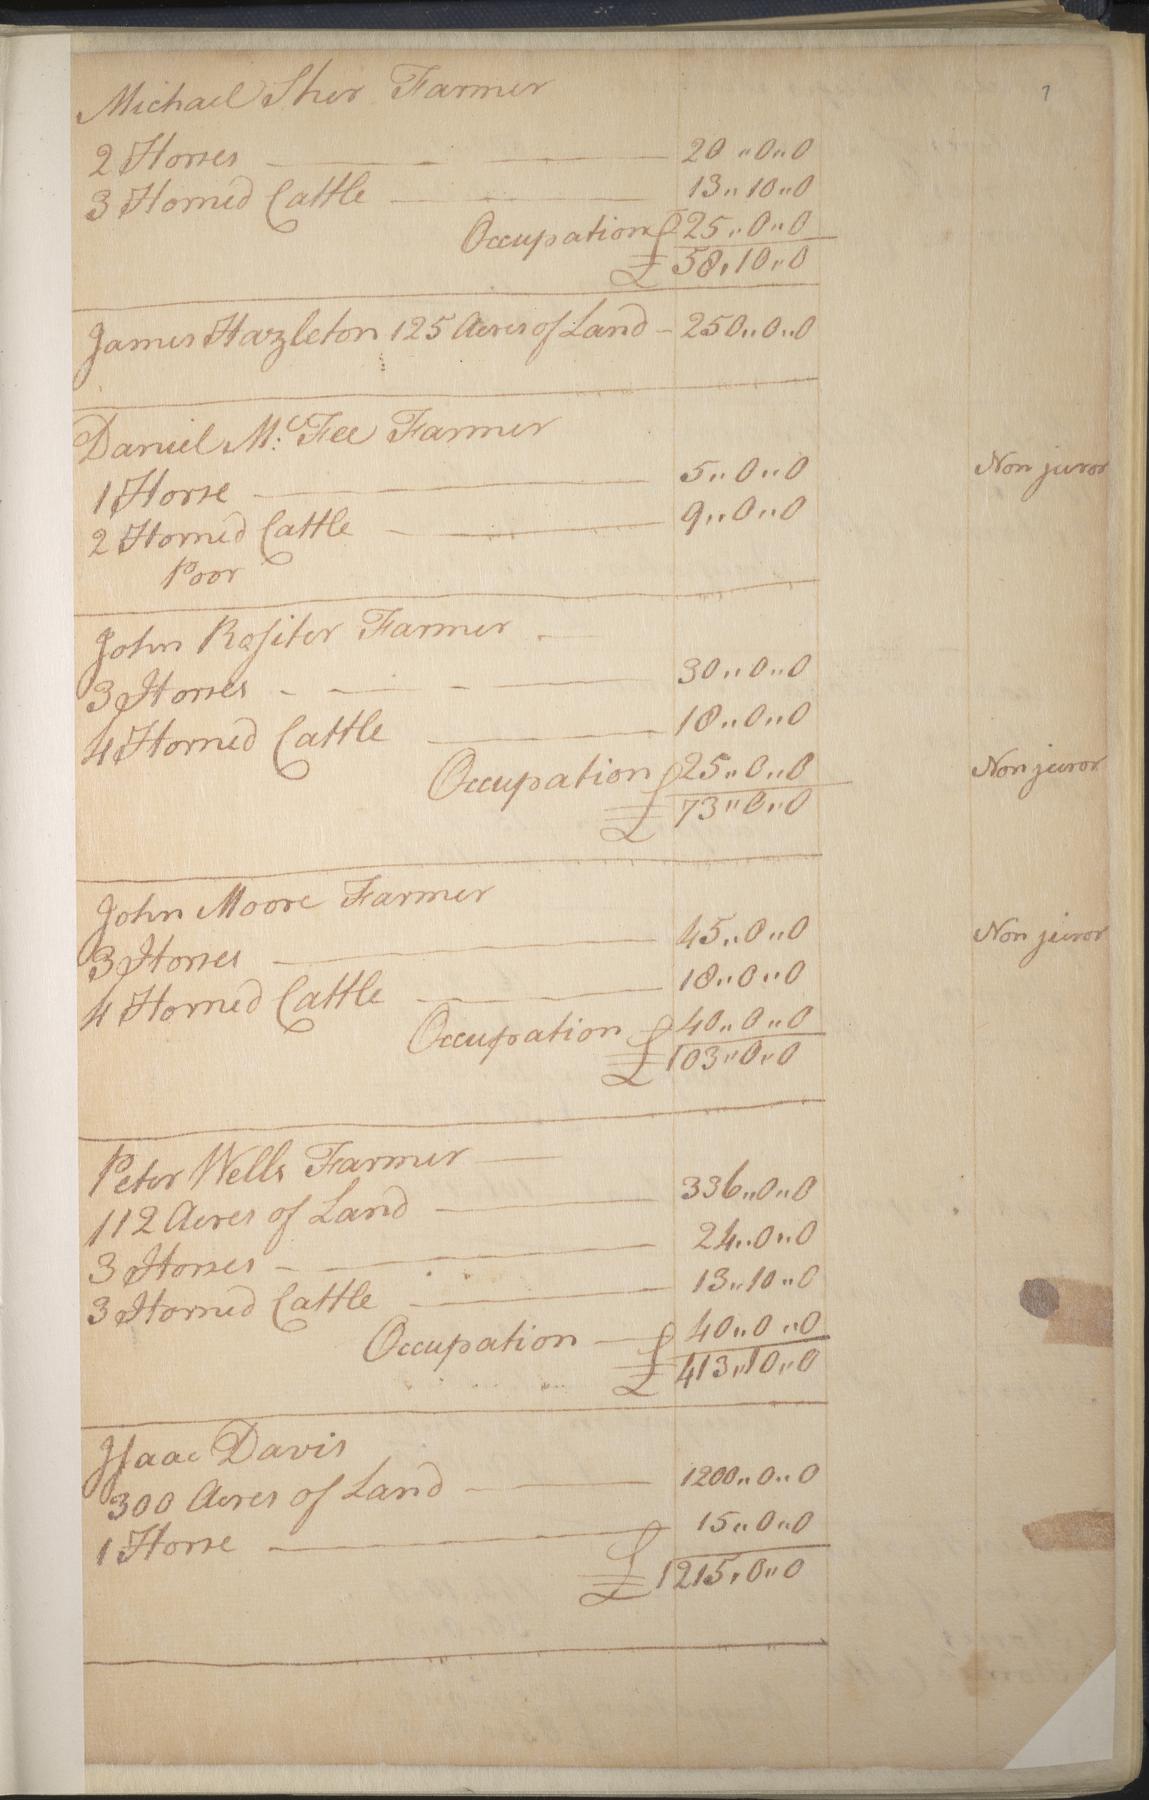 7
Michael Sher Farmer
2 Horses 20 „ 0 „ 0
3 Horned Cattle 13 „ 10 „ 0
Occupation 25 „ 0 „ 0
£ 58 „ 10 „ 0
James Hazleton 125 Acres of Land 250 „ 0 „ 0
Daniel Mc. Fee Farmer
1 Horse 5 „ 0 „ 0 Non juror
2 Horned Cattle 9 „ 0 „ 0
Poor
John Roſiter Farmer
3 Horses 30 „ 0 „ 0
4 Horned Cattle 18 „ 0 „ 0
Occupation 25 „ 0 „ 0 Non juror
£ 73 „ 0 „ 0
John Moore Farmer
3 Horses 45 „ 0 „ 0 Non juror
4 Horned Cattle 18 „ 0 „ 0
Occupation 40 „ 0 „ 0
£ 103 „ 0 „ 0
Peter Wells Farmer
112 Acres of Land 336 „ 0 „ 0
3 Horses 24 „ 0 „ 0
3 Horned Cattle 13 „ 10 „ 0
Occupation 40 „ 0 „ 0
£ 413 „ 10 „ 0
Iſaac Davis
300 Acres of Land 1200 „ 0 „ 0
1 Horse 15 „ 0 „ 0
£ 1215 „ 0 „ 0